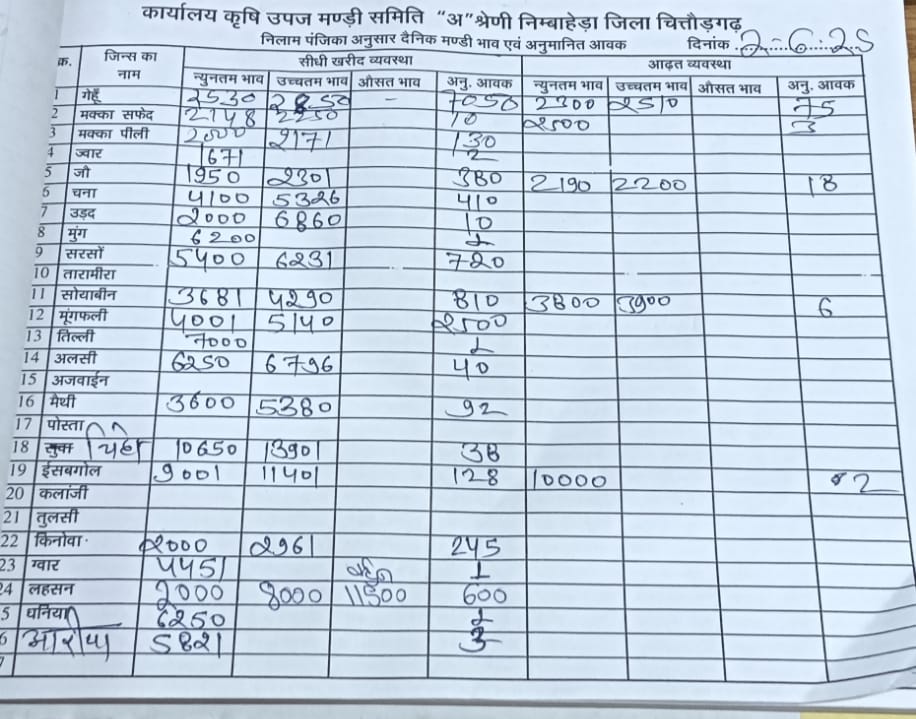 कार्यालय कृषि उपज मण्डी समिति "अ" श्रेणी निम्बाहेड़ा जिला चित्तौड़गढ़
निलाम पंजिका अनुसार दैनिक मण्डी भाव एवं अनुमानित आवक दिनांक 2-6-25
क्र. जिन्स का नाम सीधी खरीद व्यवस्था आढ़त व्यवस्था
न्युनतम भाव उच्चतम भाव औसत भाव अनु. आवक न्युनतम भाव उच्चतम भाव औसत भाव अनु. आवक
1 गेहूँ 2530 2850 - 7050 2300 2510 75
2 मक्का सफेद 2148 2250 10 2500 3
3 मक्का पीली 2000 2171 130
4 ज्वार 1671 2
5 जौ 1950 2301 380 2190 2200 18
6 चना 4100 5326 410
7 उड़द 2000 6860 10
8 मुंग 6200
9 सरसों 5400 6231 720
10 तारामीरा
11 सोयाबीन 3681 4290 810 3800 3900 6
12 मूंगफली 4001 5140 2500
13 तिल्ली 7000
14 अलसी 6250 6796 40
15 अजवाईन
16 मैथी 3600 5380 92
17 पोस्ता
18 10650 13901 38
19 ईसबगोल 9001 11401 128 10000 2
20 कलांजी
21 तुलसी
22 किनोवा 2000 2961 245
23 ग्वार 4451 1
24 लहसन 2000 8000 11500 600
5 धनिया 6250
6 5821 3